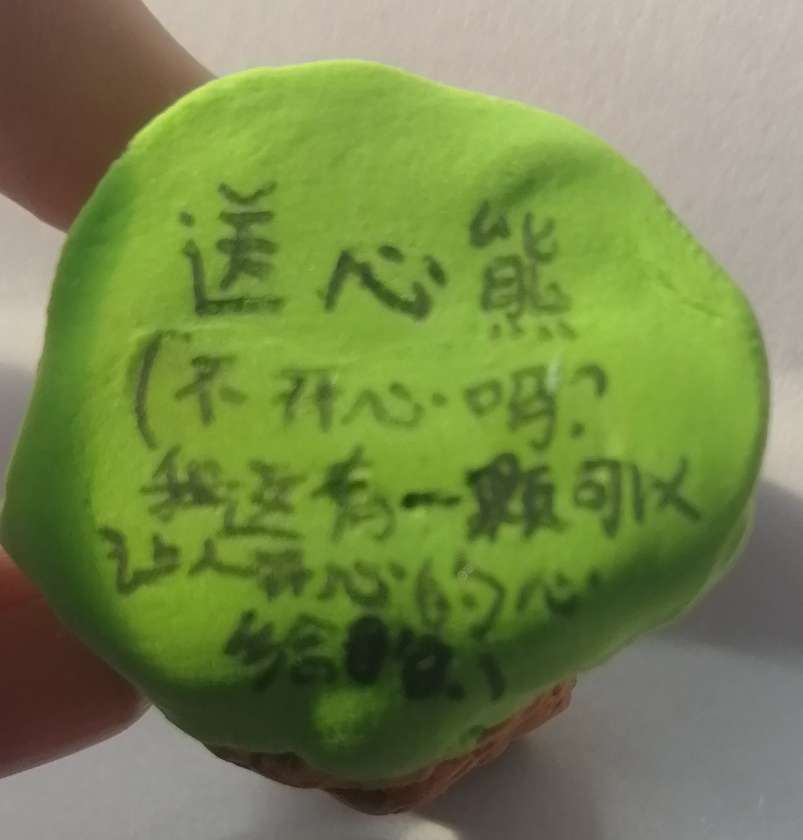 送心熊
(不开心吗?
我这有一颗可以
让人开心的心
给